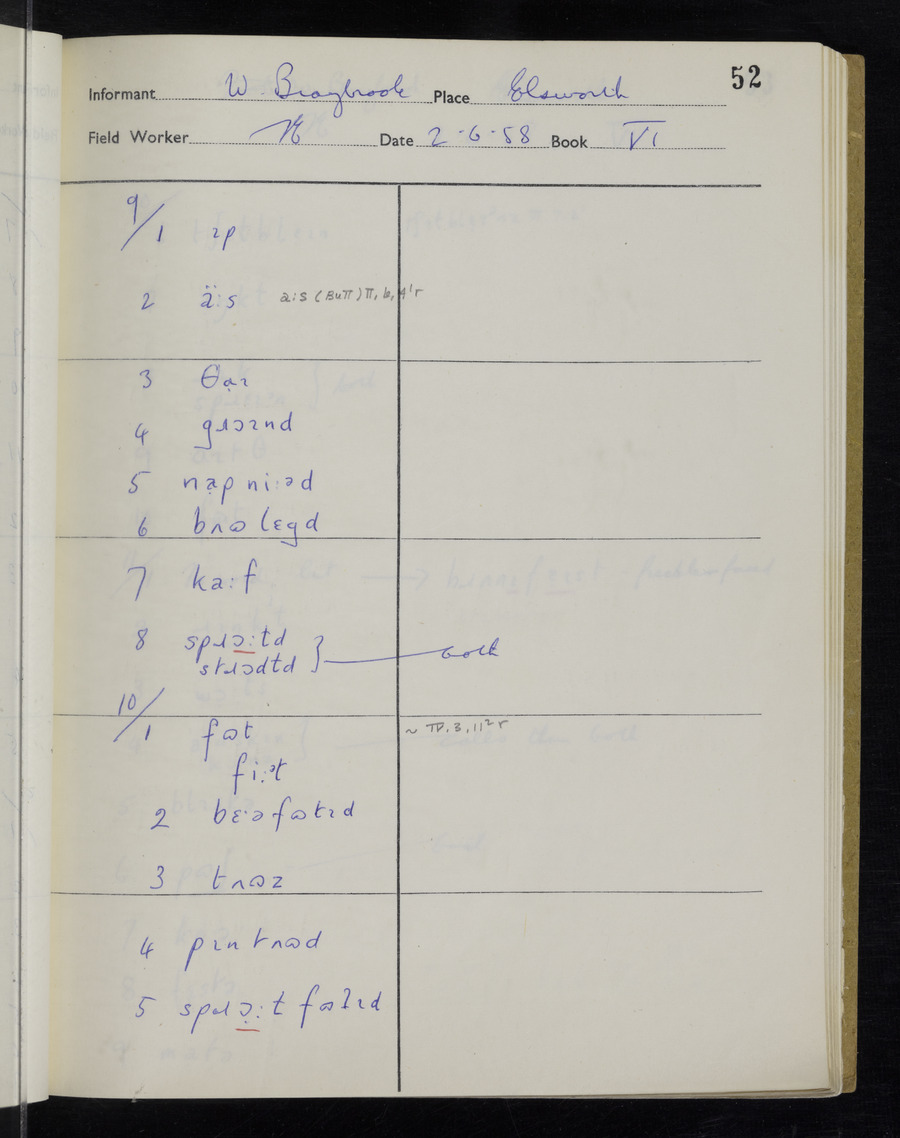 52
Informant W Braybrook Place Elsworth
Field Worker Date 2·6·58 Book VI
9/1 ɪp
2 ä:s a:s (BuTT) II, 6, 4¹r
3 θa̤ɪ
4 gɹɔɪnd
5 na̤p ni:əd
6 bʌɷlɛgd
7 ka:f
8 spɹɔ̣:td
stɹɔdtd } both
10/1 fɷt ~ IV.3.11²r
fi:ət
2 bɛ·əfɷtɪd
3 tʌɷz
4 pɪn tʌɷd
5 spɹɔ̣:t fɷʔɪd